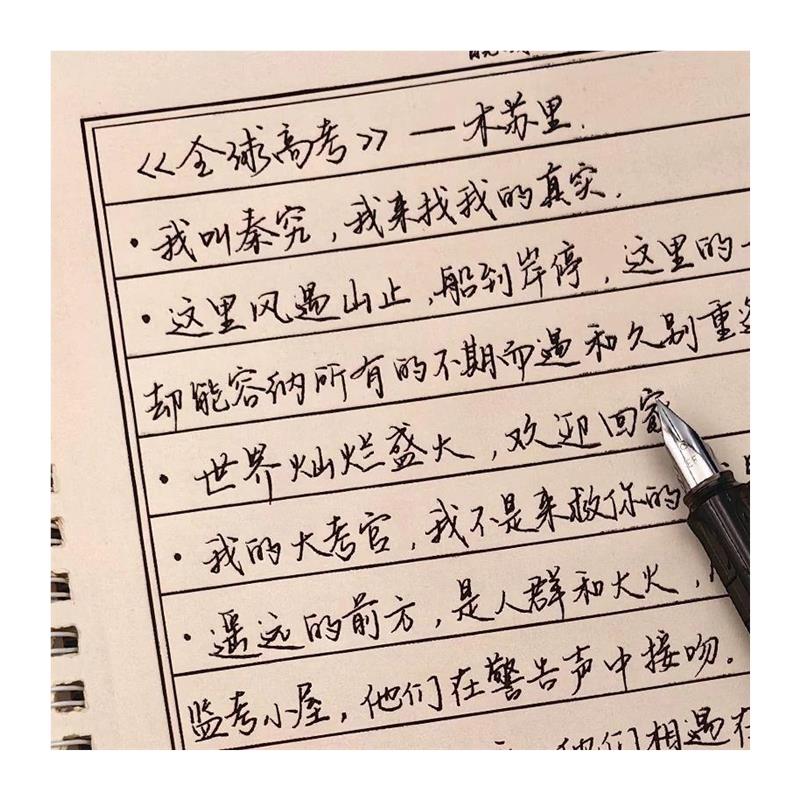 《全球高考》—木苏里.
·我叫秦究,我来找我的真实.
·这里风遇山止,船到岸停,这里的一
却能容纳所有的不期而遇和久别重逢
·世界灿烂盛大,欢迎回家
·我的大考官,我不是来救你的
·遥远的前方,是人群和大火,
监考小屋,他们在警告声中接吻。
他们相遇在